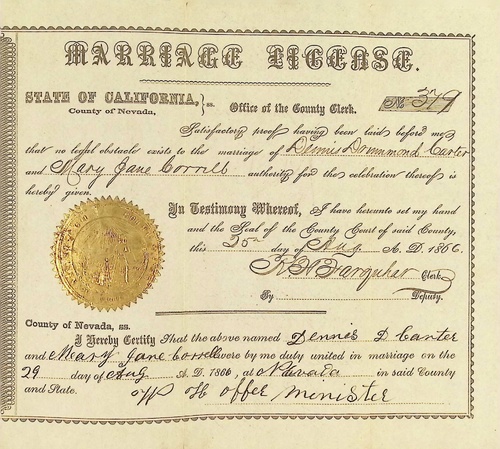 MARRIAGE LICENSE.
STATE OF CALIFORNIA, } ss. Office of the County Clerk. No 379
County of Nevada,
Satisfactory proof having been laid before me
that no legal obstacle exists to the marriage of Dennis Drummond Carter
and Mary Jane Correll authority for the celebration thereof is
hereby given.
In Testimony Whereof, I have hereunto set my hand
and the Seal of the County Court of said County,
this 25th day of Aug A. D. 1866.
Farquhar Clerk
By Deputy.
County of Nevada, ss.
I Hereby Certify That the above named Dennis D Carter
and Mary Jane Correll were by me duly united in marriage on the
29 day of Aug A. D. 1866, at Nevada in said County
and State.
minister